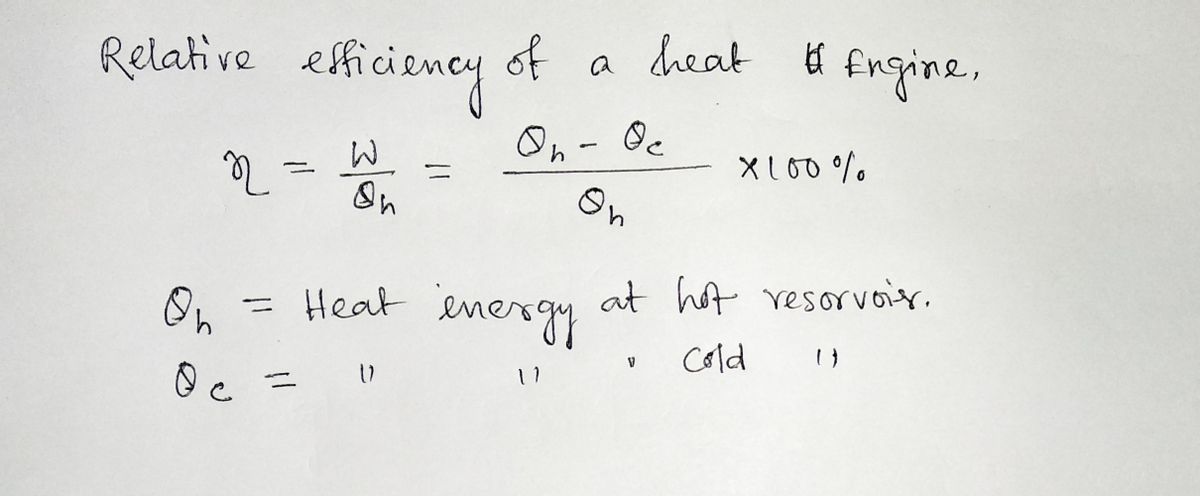 Relative efficiency of a heat Engine,
η = W/Qh = Qh - Qc/Qh ×100%
Qh = Heat energy at hot resorvoir.
Qc = " " " Cold "